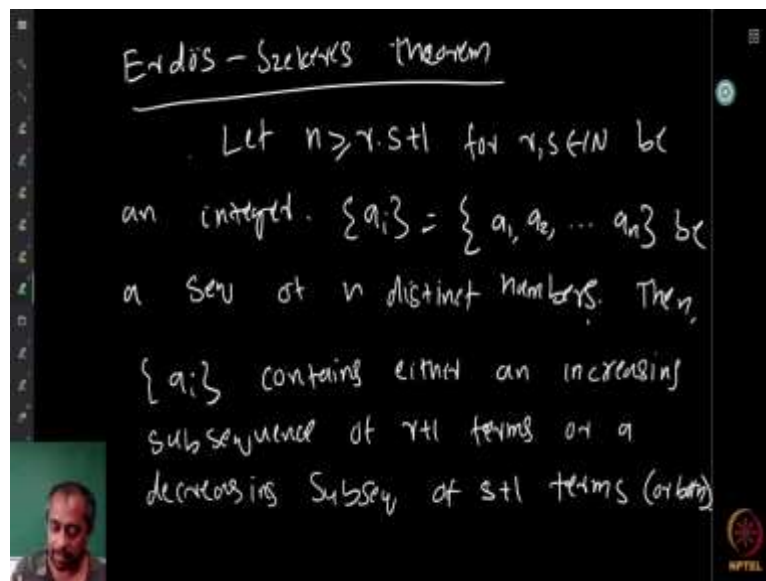 Erdös - Szekeres theorem
Let n ≥ r.s+1 for r, s ∈ IN be
an integer. {ai} = { a1, a2, ... an} be
a seq of n distinct numbers. Then,
{ai} contains either an increasing
subsequence of r+1 terms or a
decreasing subseq of s+1 terms (or both)
NPTEL